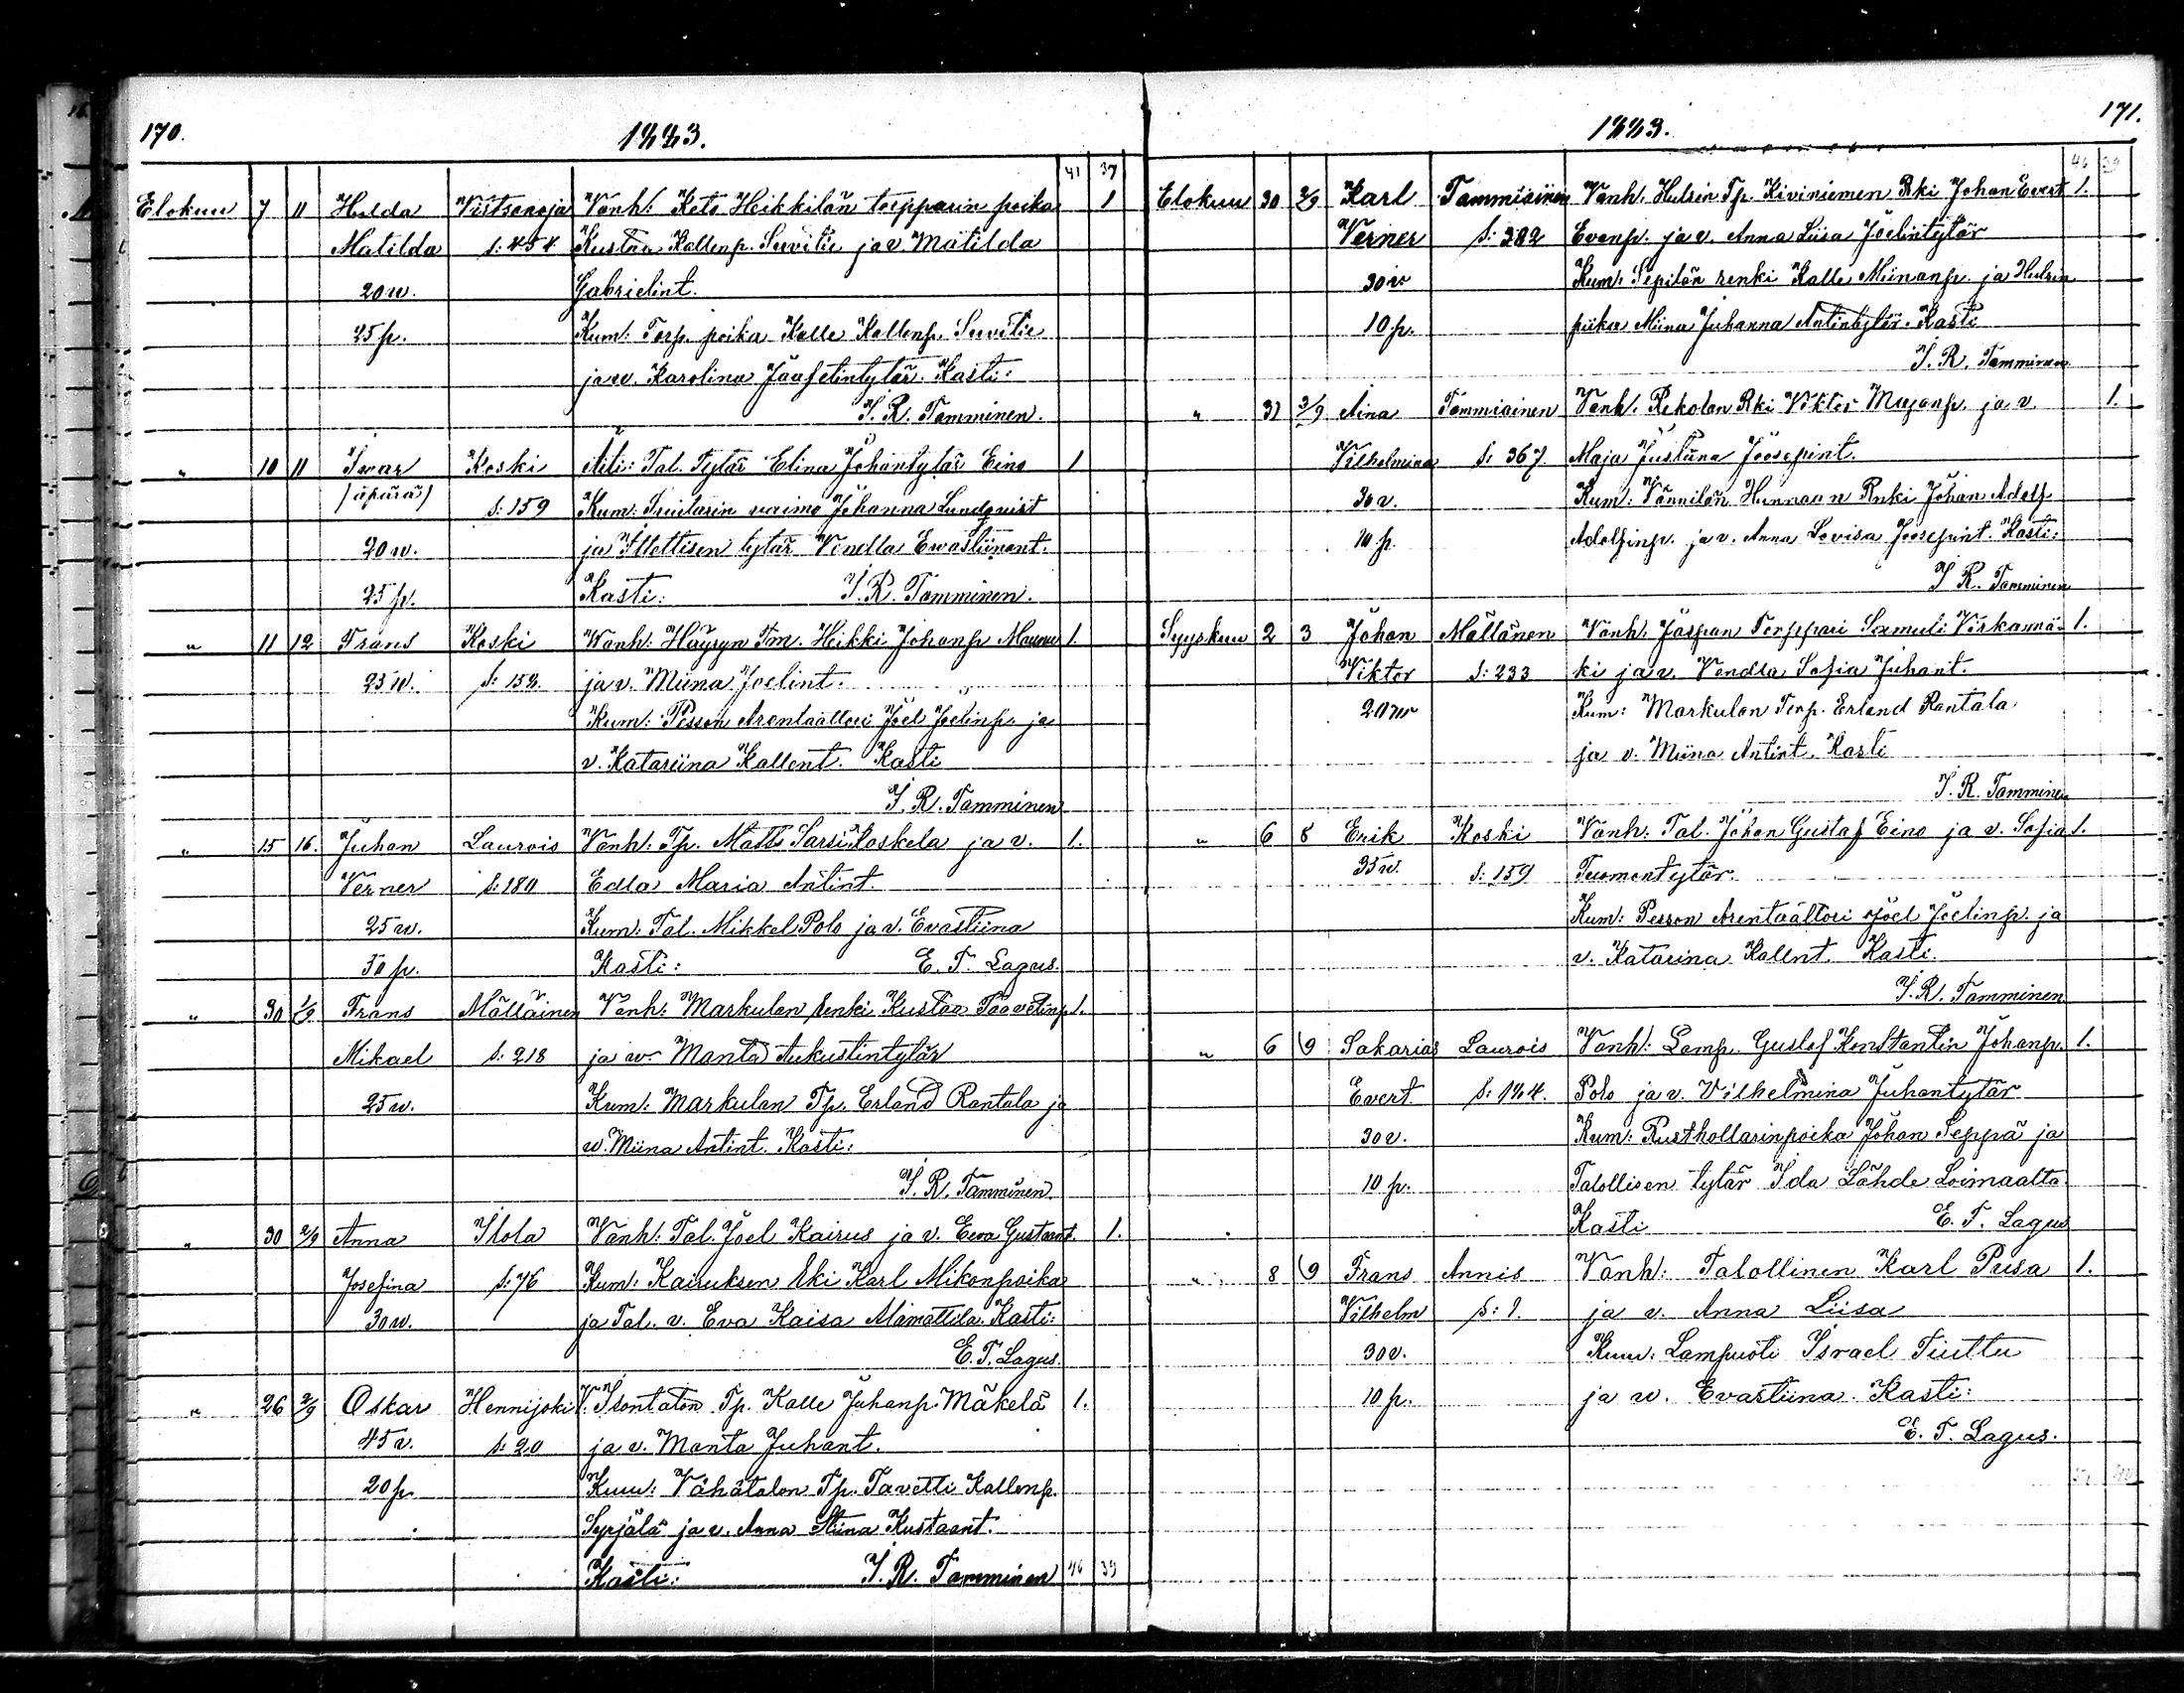 170.
1883.
41 37
Elokuu 7 11 Hilda Vitsanoja Vanh: Keto Heikkilän torpparin poika 1
Matilda s: 454 Kustaa Kallenp. Suvitie ja v. Matilda
20 w. Gabrielint.
25 p. Kum: Torp. poika Kalle Kallenp. Suvitie
ja w. Karolina Jaafetintytär. Kasti:
I. R. Tamminen.
" 10 11 Ivar Koski Äiti: Tal. Tytär Elina Johantytär Eino 1
(äpärä) s: 159 Kum: Johanna Lundqvist
20 w. ja tytär Vendla Ewastiinant.
25 p. Kasti: I. R. Tamminen.
" 11 12 Frans Koski Wanh: Häyryn Tm. Heikki Johanp 1.
25 w. s: 158. ja v. Miina Joelint.
Kum: Pesson Arentaattori Joel Joelinp. ja
v. Katariina Kallent. Kasti
I. R. Tamminen
" 15 16. Juhan Laurois Vanh: Tp. Matts Koskela ja v. 1.
Verner s: 180 Edla Maria Antint.
25 w. Kum: Tal. Mikkel Polo ja v. Evastiina
50 p. Kasti: E. F. Lagus.
" 30 1/9 Frans Mälläinen Vanh: Markulan renki Kustaa Taavetinp 1.
Mikael s: 218 ja w. Manta Aukustintytär
25 w. Kum: Markulan Tp. Erland Rantala ja
w. Miina Antint. Kasti:
I. R. Tamminen.
" 30 2/9 Anna Ilola Vanh: Tal. Joel Kairus ja v. Eeva Gustavnt. 1.
Josefina s: 76 Kum: Kairuksen Rki Karl Mikonpoika
30 w. ja Tal. v. Eva Kaisa Alimattila. Kasti:
E. F. Lagus.
" 26 2/9 Oskar Hennijoki V. Isontalon Tp. Kalle Juhanp. Mäkelä 1.
45 v. s: 20 ja v. Manta Juhant.
20 p. Kum: Vähätalon Tp. Tavetti Kallenp.
Syrjälä ja v. Anna Stiina Kustaant.
Kasti: I. R. Tamminen 46 39
171.
1883.
46 39
Elokuu 30 2/9 Karl Tammiainen Vanh. Tp. Kiviniemen Rki Johan Evert 1.
Verner s: 382 Evanp. ja v. Anna Liisa Joelintytär
30 v. Kum: Sepilän renki Kalle Miinanp. ja
10 p. piika Miina Juhanna Antintytär. Kasti
I. R. Tamminen
" 31 3/9 Aina Tammiainen Vanh. Rekolan Rki Viktor Majanp. ja v. 1.
Vilhelmina s: 367. Maja Justiina Joosepint.
30 v. Kum: Vännilän Hannaan Rnki Johan Adolf
10 p. Adolfinp. ja v. Anna Lovisa Joosepint. Kasti:
I. R. Tamminen
Syyskuu 2 3 Johan Mällänen Vanh. Jaspan Torppari Samuli Virkamä- 1.
Viktor s: 233 ki ja v. Vendla Sofia Juhant.
20 w Kum: Markulan Torp. Erland Rantala
ja v. Miina Antint. Kasti
I. R. Tamminen
" 6 8 Erik Koski Vanh. Tal. Johan Gustaf Eino ja v. Sofia 1.
35 w. s: 159 Tuomantytär.
Kum: Pesson Arentaattori Joel Joelinp. ja
v. Katarina Kallent. Kasti.
I. R. Tamminen
" 6 9 Sakarias Laurois Vanh: Lamp. Gustaf Konstantin Johanp. 1.
Evert s: 184. Polo ja v. Vilhelmina Juhantytär
30 v. Kum: Rusthollarinpoika Johan Seppä ja
10 p. Talollisen tytär Ida Lähde Loimaalta.
Kasti E. F. Lagus
" 8 9 Frans Annis Vanh: Talollinen Karl Pusa 1.
Vilhelm s: 1. ja v. Anna Liisa
30 v. Kum: Lampuoti Israel Tiuttu
10 p. ja w. Evastiina. Kasti:
E. F. Lagus.